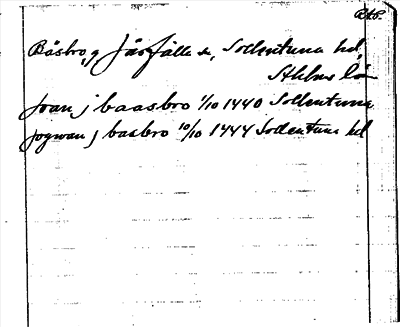 RAP.
Bäsbro, Järfälla sn, Sollentuna hd,
Sthlms län
Joan j baasbro 1/10 1440 Sollentuna
jogwan j basbro 10/10 1444 Sollentuna hd